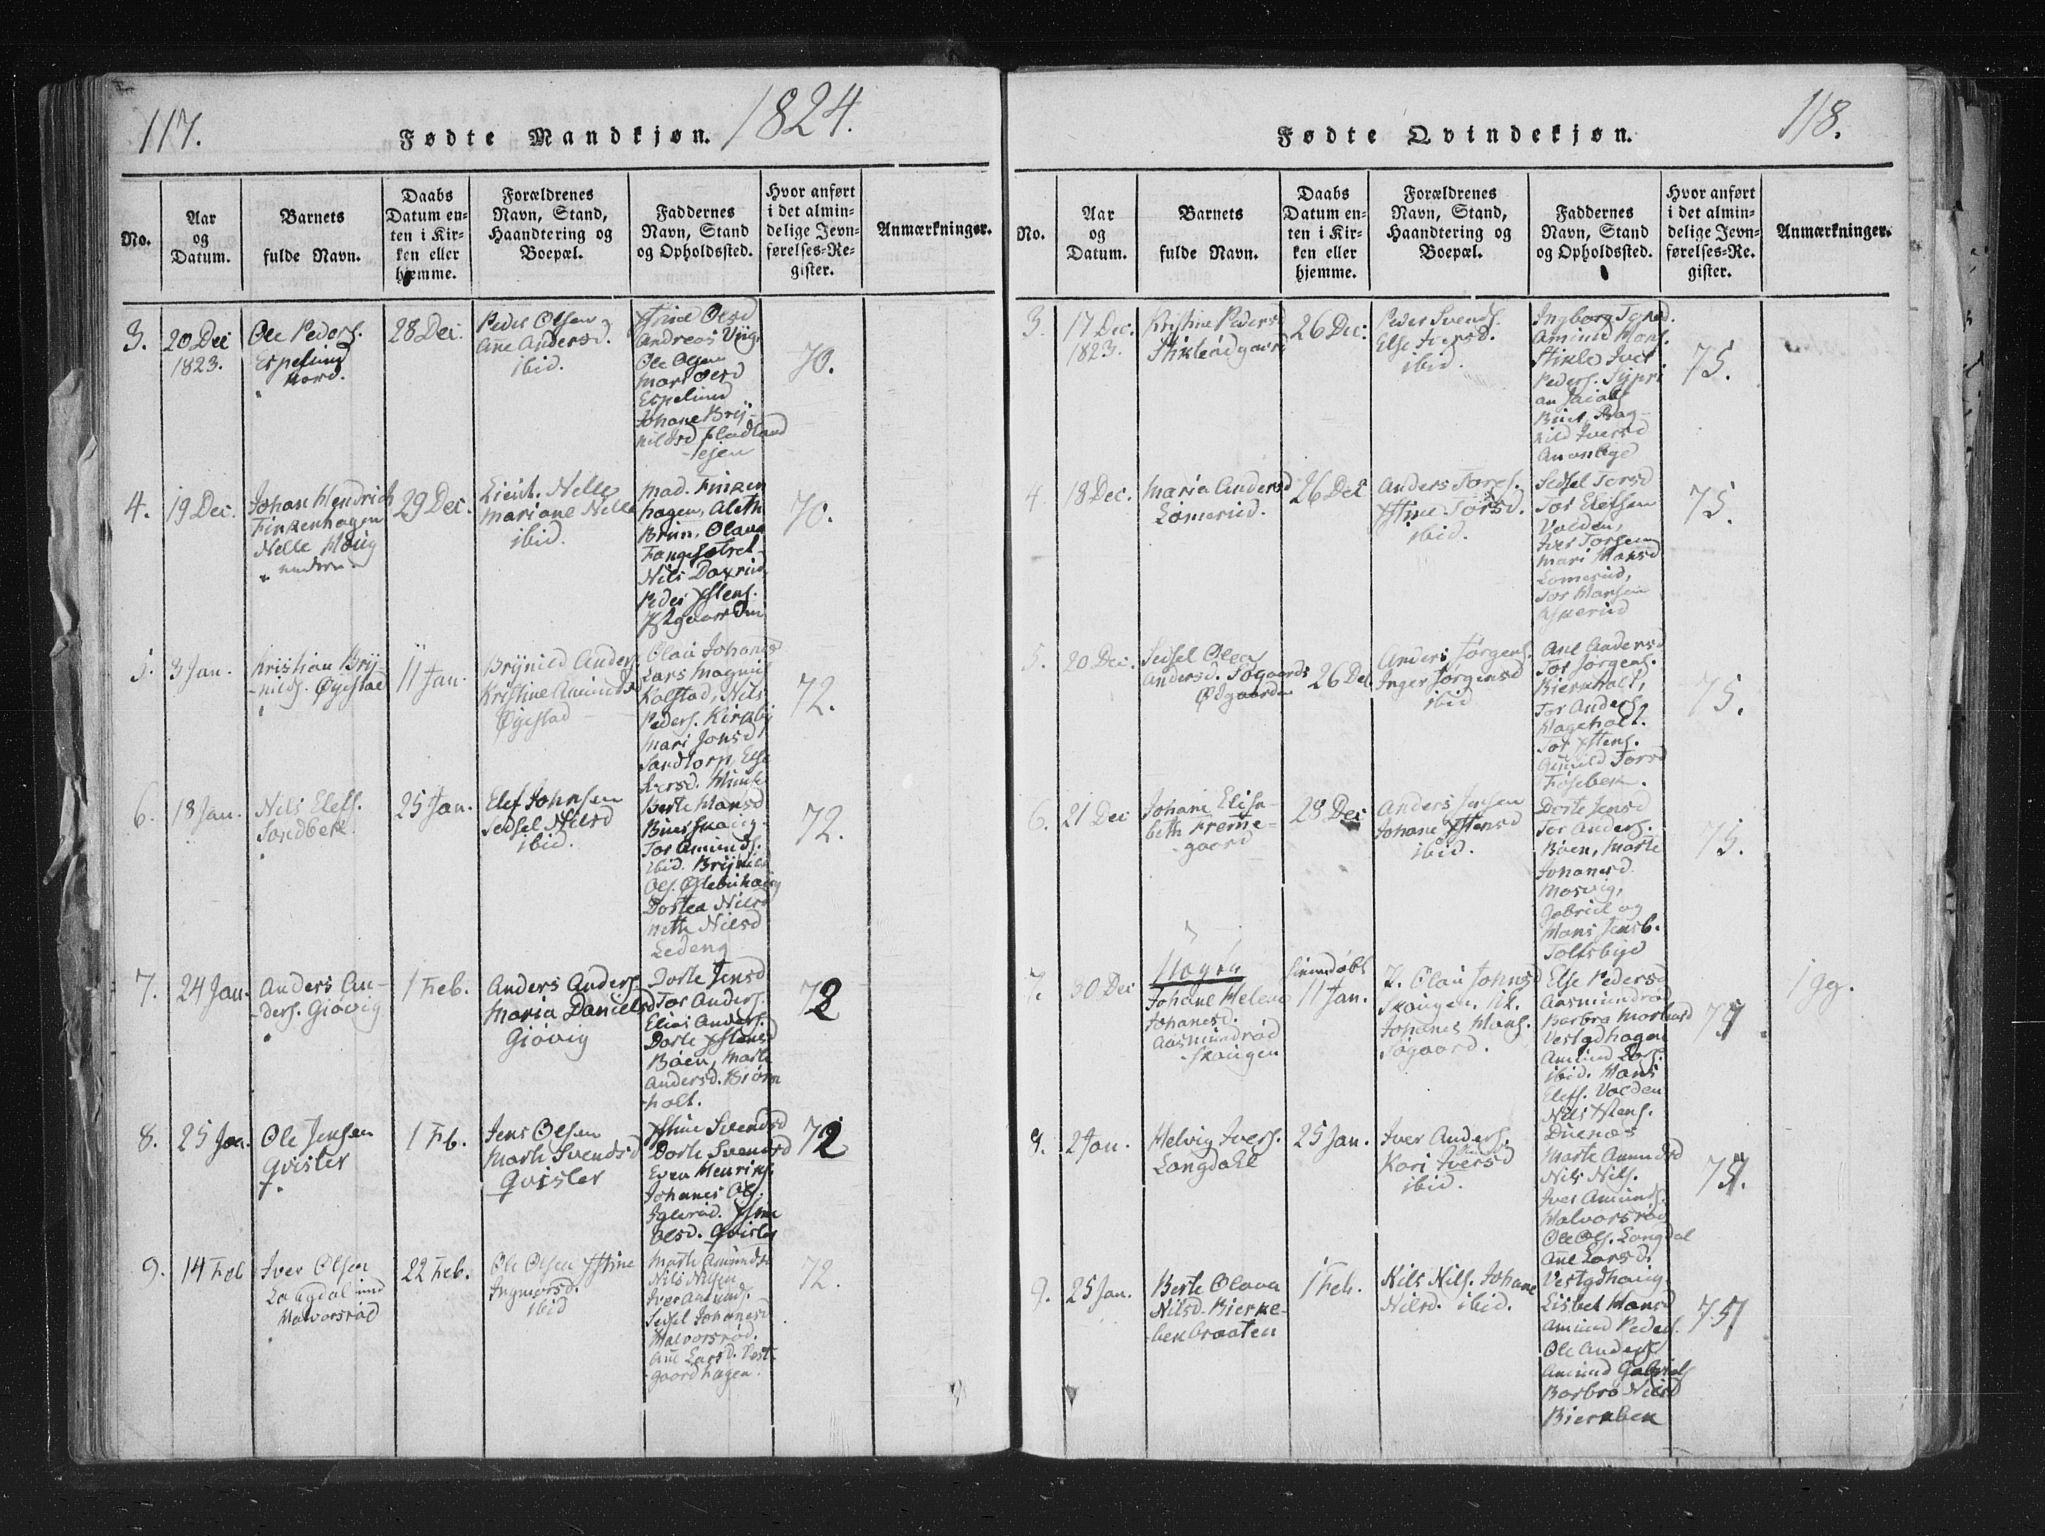 117.
Fødte Mandkjøn. 1824.
No.
Aar
og
Datum.
Barnets
fulde Navn.
Daabs
Datum en-
ten i Kir-
ken eller
hjemme.
Forældrenes
Navn, Stand,
Haandtering og
Boepæl.
Faddernes
Navn, Stand
og Opholdssted.
Hvor anført
i det almin-
delige Jevn-
førelses-Re-
gister.
Anmærkninger.
3.
20 Dec
1823.
Ole Peders.
Espelund
Nord.
28 Dec.
Peder Olsen
Ane Andersd.
ibid.
Olsd
Andreas
Ole Olsen
Mari Olsd
Espelund
Johane Bryn-
hildsd Fladland
-sejen
70.
4.
19 Dec.
Johan Hendrich
Finkenhagen
Nelle Houg
nedre.
29 Dec.
Lieut. Nelle
Mariane Nelle
ibid.
Mad. Finken
hagen, Aleth
Brun, Olava
Nils
Peder Ystens.
70.
5.
3 Jan.
Kristian Bry-
-nilds. Øyestad
11 Jan.
Brynild Anders.
Kristine Amunds
Øyestad
Olau Johans
Lars Magnus
Kolstad, Nils
Peders. Kirkeby
Mari Jonsd
Sandtorp, Else
72.
6.
18 Jan.
Nils Elefs.
Sandbek.
25 Jan.
Elef Johnsen
Sedsel Nilsd
ibid.
Berte Hansd
Tor Amunds.
ibid. Brynild
Ols.
Dortea Nilsd
Nilsd
Ledeng
72.
7.
24 Jan.
Anders An-
-ders. Giøvig
1 Feb.
Anders Anders.
Maria Danielsd
Giøvig
Dorte Jensd
Tor Anders.
Elias Anders.
Dorte Ystensd
Bøen, Marte
Andersd. Biørn
-holt.
72
8.
25 Jan.
Ole Jensen
Qvisler
1 Feb.
Jens Olsen
Marte Svendsd
Qvisler
Ystine Svendsd
Dorte Svendsd
Even Henriks.
Johanes Ols.
Igelrød. Ystine
Olsd. Qvisler
72
9.
14 Feb
Iver Olsen
Langdal und
Halvorsrød
22 Feb.
Ole Olsen Ystine
Ingvorsd.
ibid
Marte Amundsd
Nils Nilsen
Iver Amunds.
Sedsel Johanesd
Halvorsrød.
Ane Larsd. Vest-
gaardhagen.
72.
118.
Fødte Qvindekjøn.
No.
Aar
og
Datum.
Barnets
fulde Navn.
Daabs
Datum en-
ten i Kir-
ken eller
hjemme.
Forældrenes
Navn, Stand,
Haandtering og
Boepæl.
Faddernes
Navn, Stand
og Opholdssted.
Hvor anført
i det almin-
delige Jevn-
førelses-Re-
gister.
Anmærkninger.
3.
17 Dec.
1823.
Kristine Pedersd
26 Dec.
Peder Svends.
Else Iversd.
ibid.
Ingborg
Amund Hans.
Stikle Iver
Peders.
an Jacobs
Rag-
nild Iversd
75.
4.
18 Dec.
Maria Andersd
Lomerud.
26 Dec
Anders Tores.
Ystine Torsd.
ibid.
Sedsel Torsd
Tor Elefsen
Valden,
Iver Torsen
Mari Hansd
Lomerud,
Tor Hansen
75.
5.
20 Dec.
Sedsel Olea
Andersd. Søgaards
Ødgaarden
26 Dec
Anders Jørgens.
Inger Jørgensd
ibid
Ane Andersd
Tor Jørgens.
Biernholt,
Tor Anders.
Hageholt.
Tor Ystens.
Gunild Torsd
Fosebek.
75.
6.
21 Dec
Johane Elisa-
beth Freme-
-gaard
28 Dec
Anders Jensen
Johane Ystensd
ibid.
Dorte Jensd
Tor Anders.
Bøen, Marte
Johanesd.
Mosvig,
Gabriel og
Hans Jensb.
Toltsbye
75.
7.
30 Dec
Uægte
Johane Helene
Johanesd.
Aasmundrød
-skougen
11 Jan.
P. Olau Johnsd
Skougen. U.K.
Johanes Hans.
Søgaard.
Else Pedersd
Aasmundrød
Barbra Mortensd
Vestgdhagen
Amund Lars.
ibid. Hans
Elefs. Valden
Nils Ystens.
Duenæs
1 gg.
8.
2 Jan.
Helvig Ivers.
Langdahl
25 Jan.
Iver Anders.
Kari Iversd
ibid.
Marte Amundsd
Nils Nils.
Iver Amunds.
Halvorsrød
Ole Ols. Langdal
Ane Larsd.
Vestgdhaug
9.
25 Jan.
Berte Olava
Nilsd. Bierke-
-bekbraaten
1 Feb.
Nils Nils. Johane
Nilsd. ibid.
Lisbet Hansd
Amund Peders.
Ole Anders
Amund Gabriels
Barbro Nilsd
Bierkbek